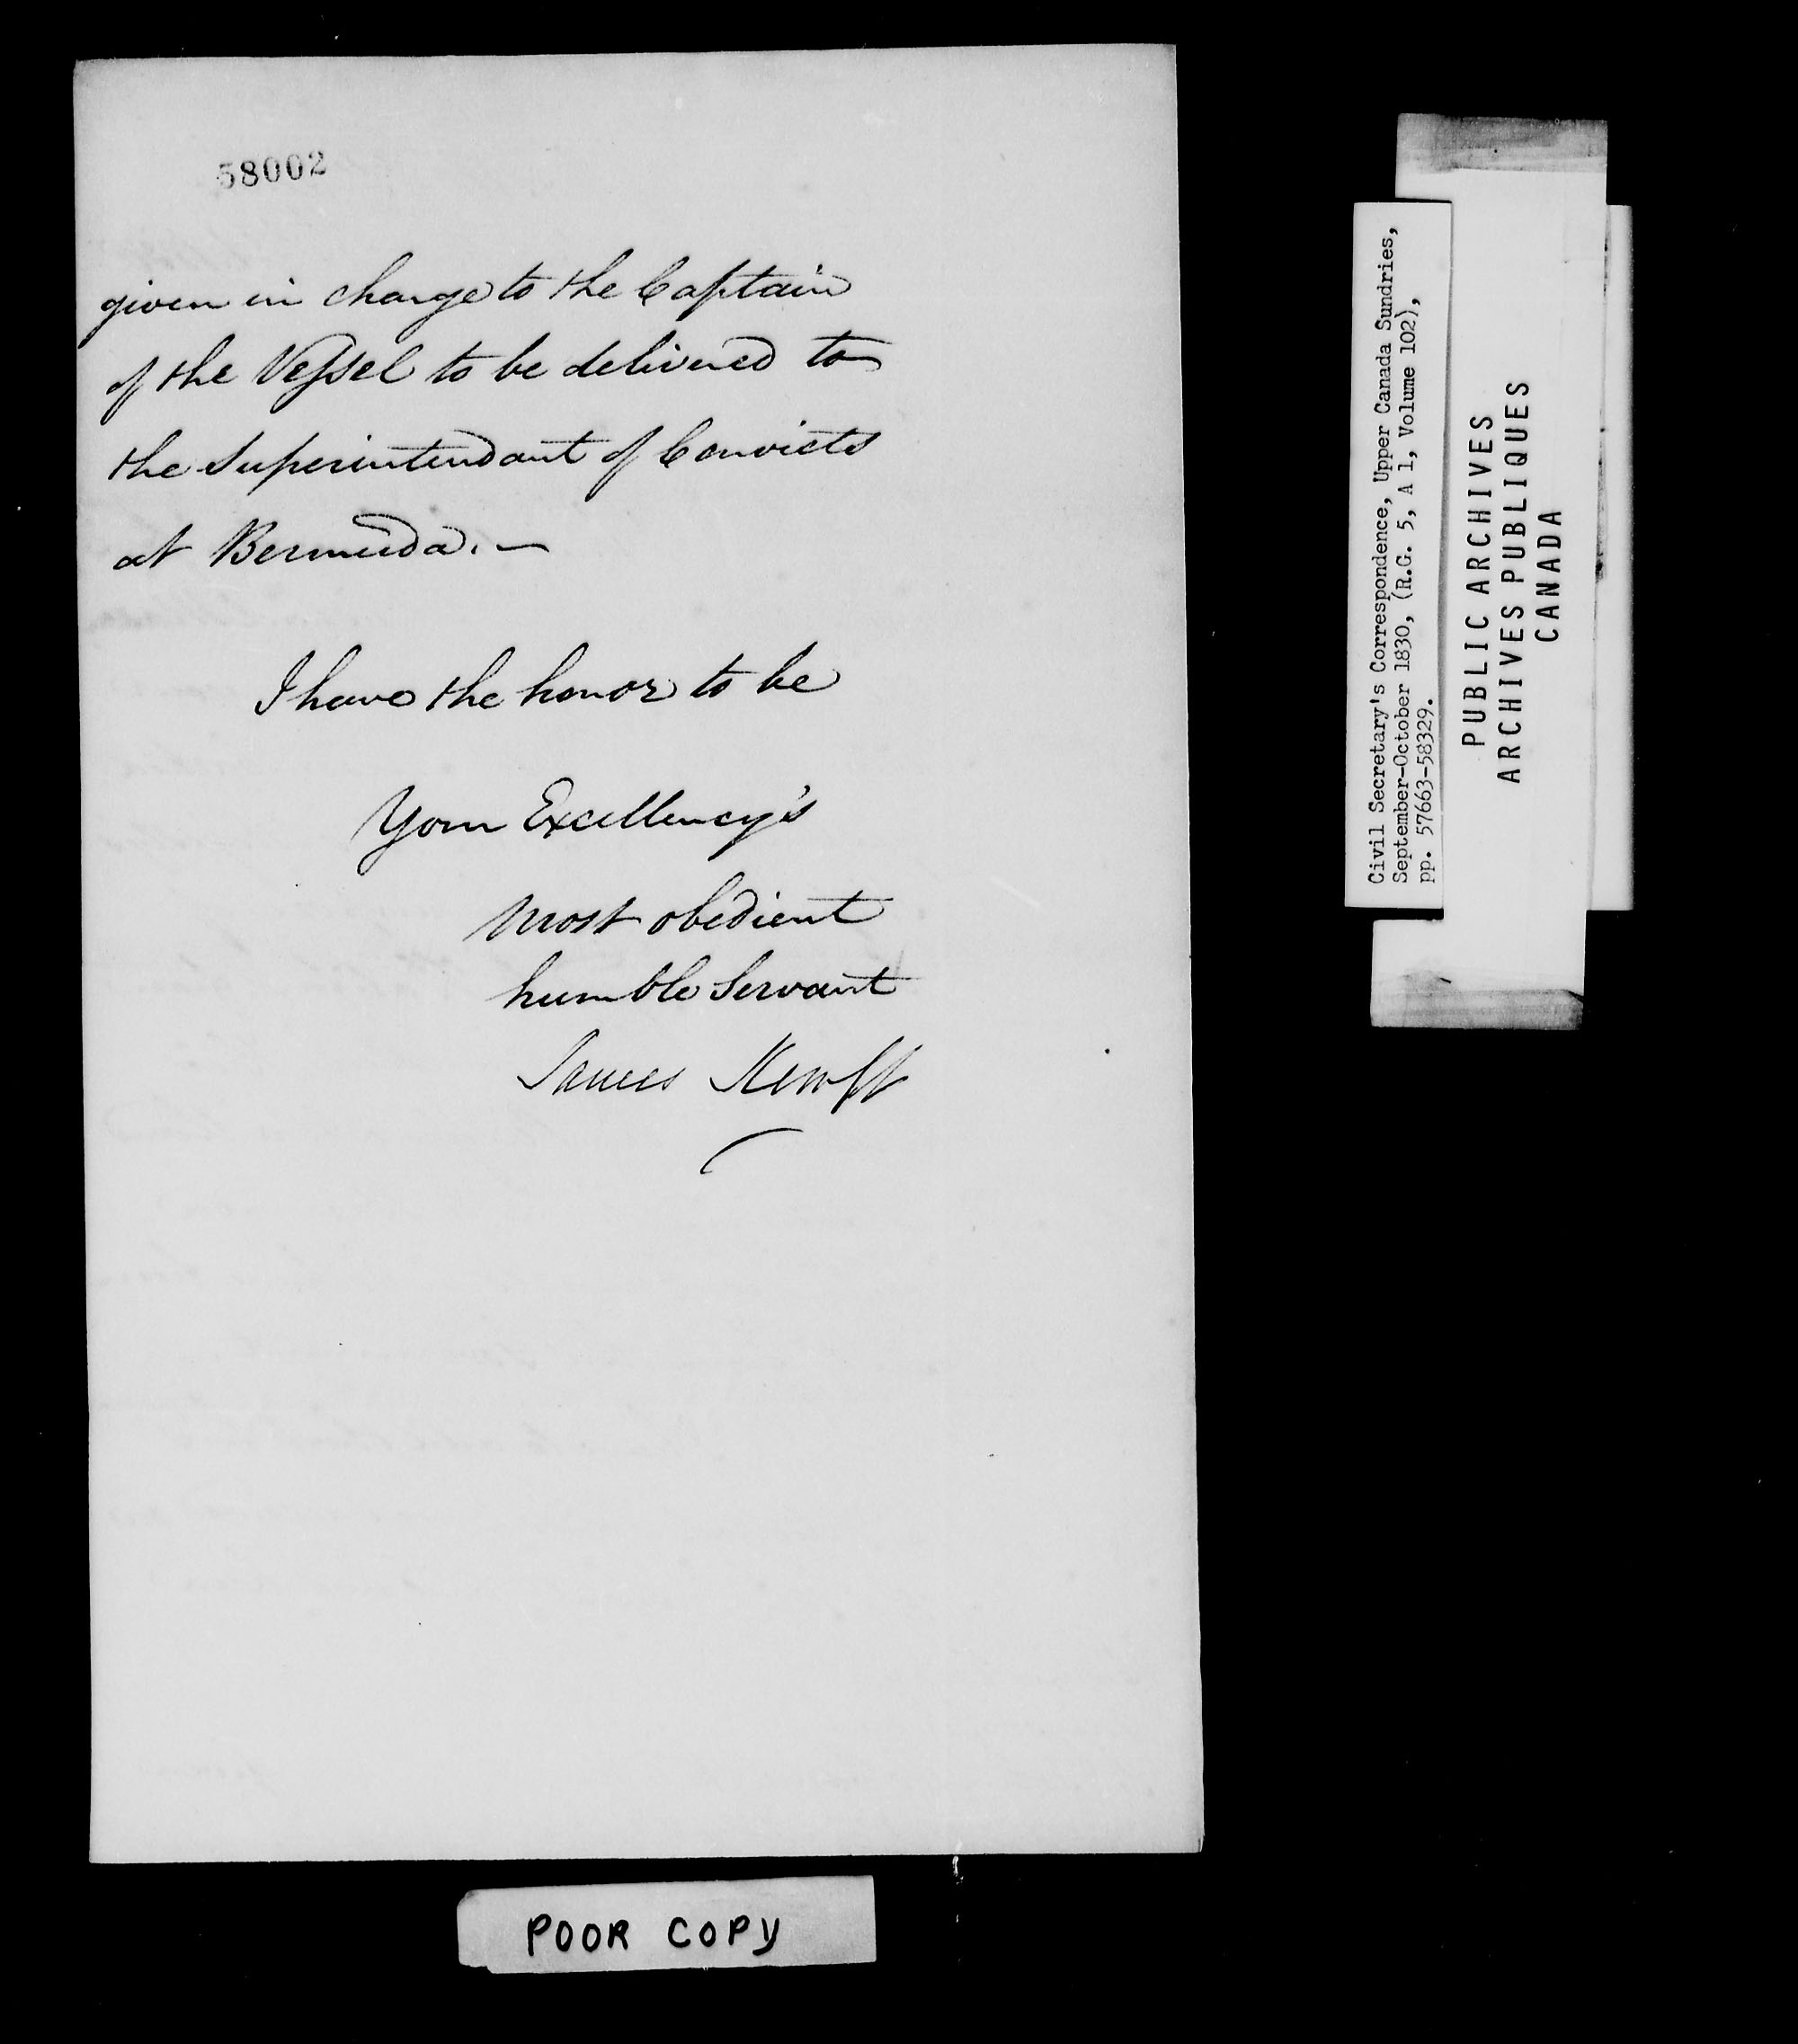 58002
given in charge to the Captain
of the Vessel to be delivered to
the Superintendant of Convicts
at Bermuda. —
I have the honor to be
Your Excellency's
most obedient
humble Servant
James Kempt
Civil Secretary's Correspondence, Upper Canada Sundries,
September-October 1830, (R.G. 5, A 1, Volume 102),
pp. 57663-58329.
PUBLIC ARCHIVES
ARCHIVES PUBLIQUES
CANADA
POOR COPY